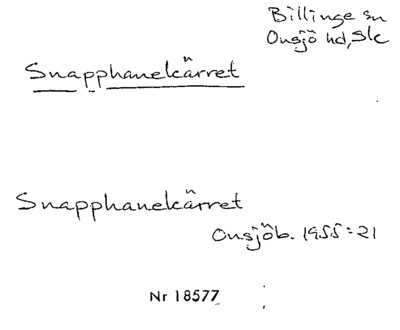 Billinge sn
Onsjö hd, Sk
Snapphanekärret
Snapphanekärret
Onsjöb. 1955:21
Nr 18577